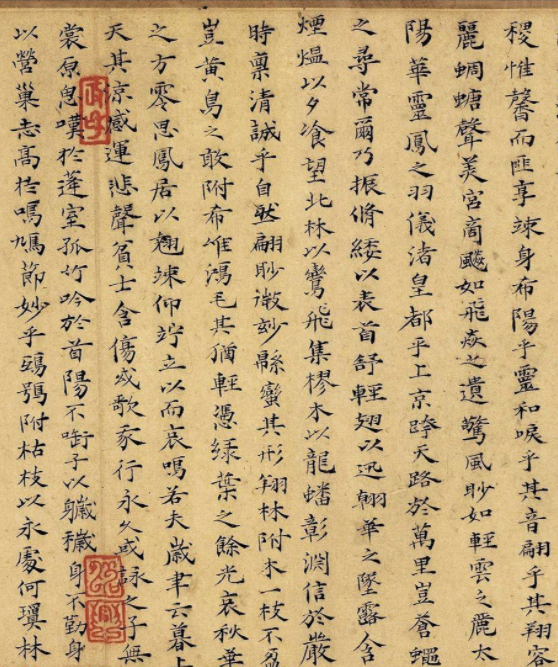 稷惟馨而匪享竦身布陽乎靈和唳乎其音翩乎其翔容
麗蜩螗聲美宮商飄如飛焱之遺驚風眇如輕雲之麗太
陽華靈鳳之羽儀渚皇都乎上京跨天路於萬里豈蒼蠅
之尋常爾乃振脩緌以表首舒輕翅以迅翰華之墜露含
煙熅以夕飡望北林以鸞飛集樛木以龍蟠彰淵信於嚴
時稟清誠乎自然翩眇微妙緜蠻其形翔林附木一枝不盈
豈黃鳥之敢附希唯鴻毛其猶輕憑綠葉之餘光哀秋華
之方零思鳳居以翹竦仰竚立以而哀鳴若夫歲聿云暮上
天其涼感運悲聲貧士含傷或歌豕行永久或詠之子無
裳原思嘆於蓬室孤竹吟於首陽不銜子以穢身不勤身
以營巢志高於鳴鳩節妙乎鴟鴞附枯枝以永處何瓊林